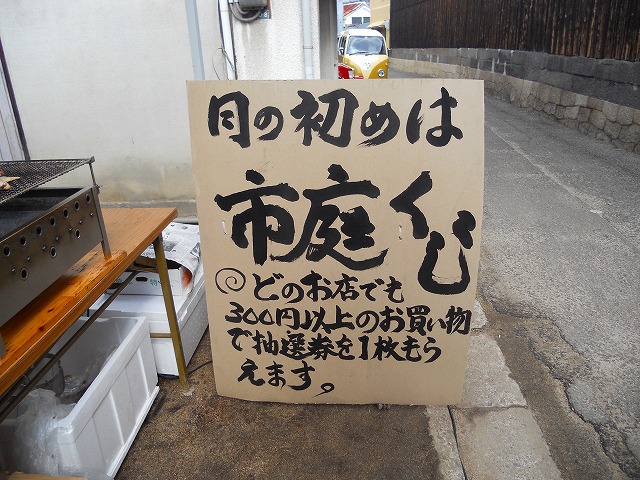 月の初めは
市庭くじ
◎どのお店でも
300円以上のお買い物
で抽選券を1枚もら
えます。